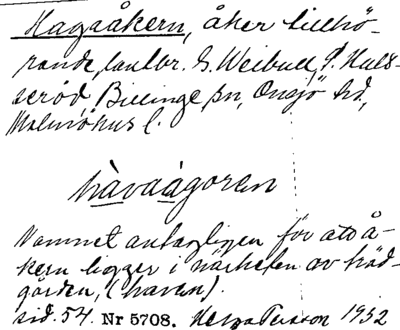 Hagaåkern, åker tillhö-
rande, lantbr. S. Weibull, St. Hals-
seröd, Billinge sn, Onsjö hd,
Malmöhus l.
hàvaágoren
Namnet antagligen för att å-
kern ligger i närheten av träd-
gården, (haven).
sid. 54. Nr 5708. Helga Persson 1932